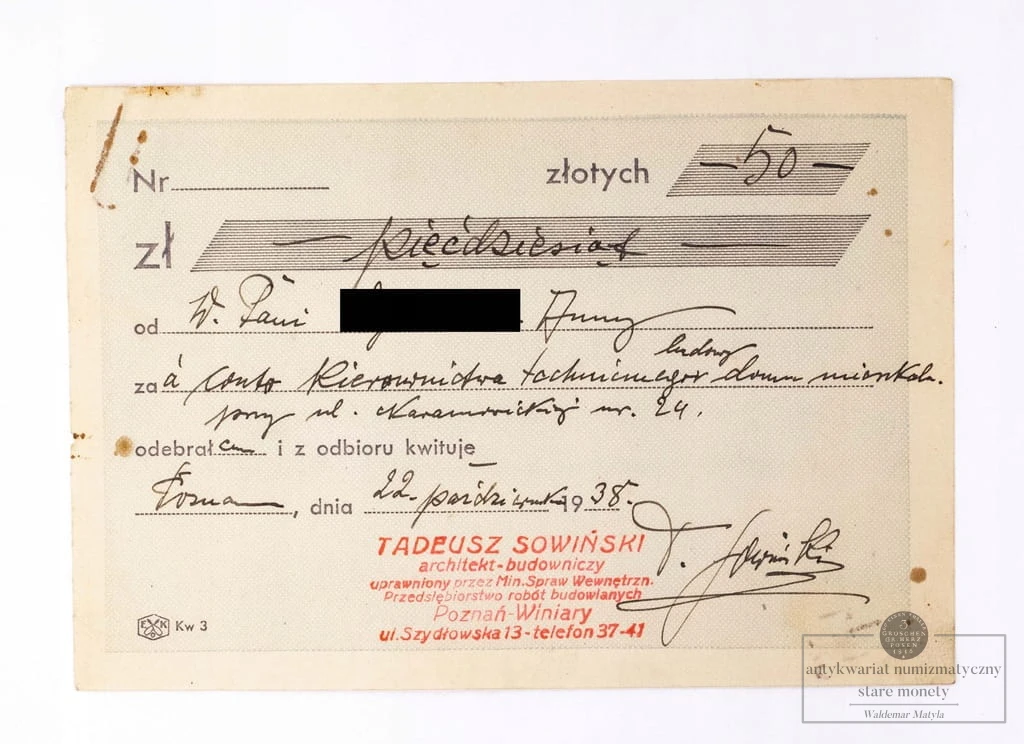 Nr
złotych — 50 —
zł — pięćdziesiąt —
od W. Pani Anny
za á conto kierownictwa technicznego budowy domu mieszkaln.
przy ul. nr. 24.
odebrałem i z odbioru kwituję
Poznań, dnia 22. października 1938.
T. Sowiński
TADEUSZ SOWIŃSKI
architekt-budowniczy
uprawniony przez Min. Spraw Wewnętrzn.
Przedsiębiorstwo robót budowlanych
Poznań-Winiary
ul. Szydłowska 13 - telefon 37-41
Kw 3
3
GROSCHEN
antykwariat numizmatyczny
stare monety
Waldemar Matyla